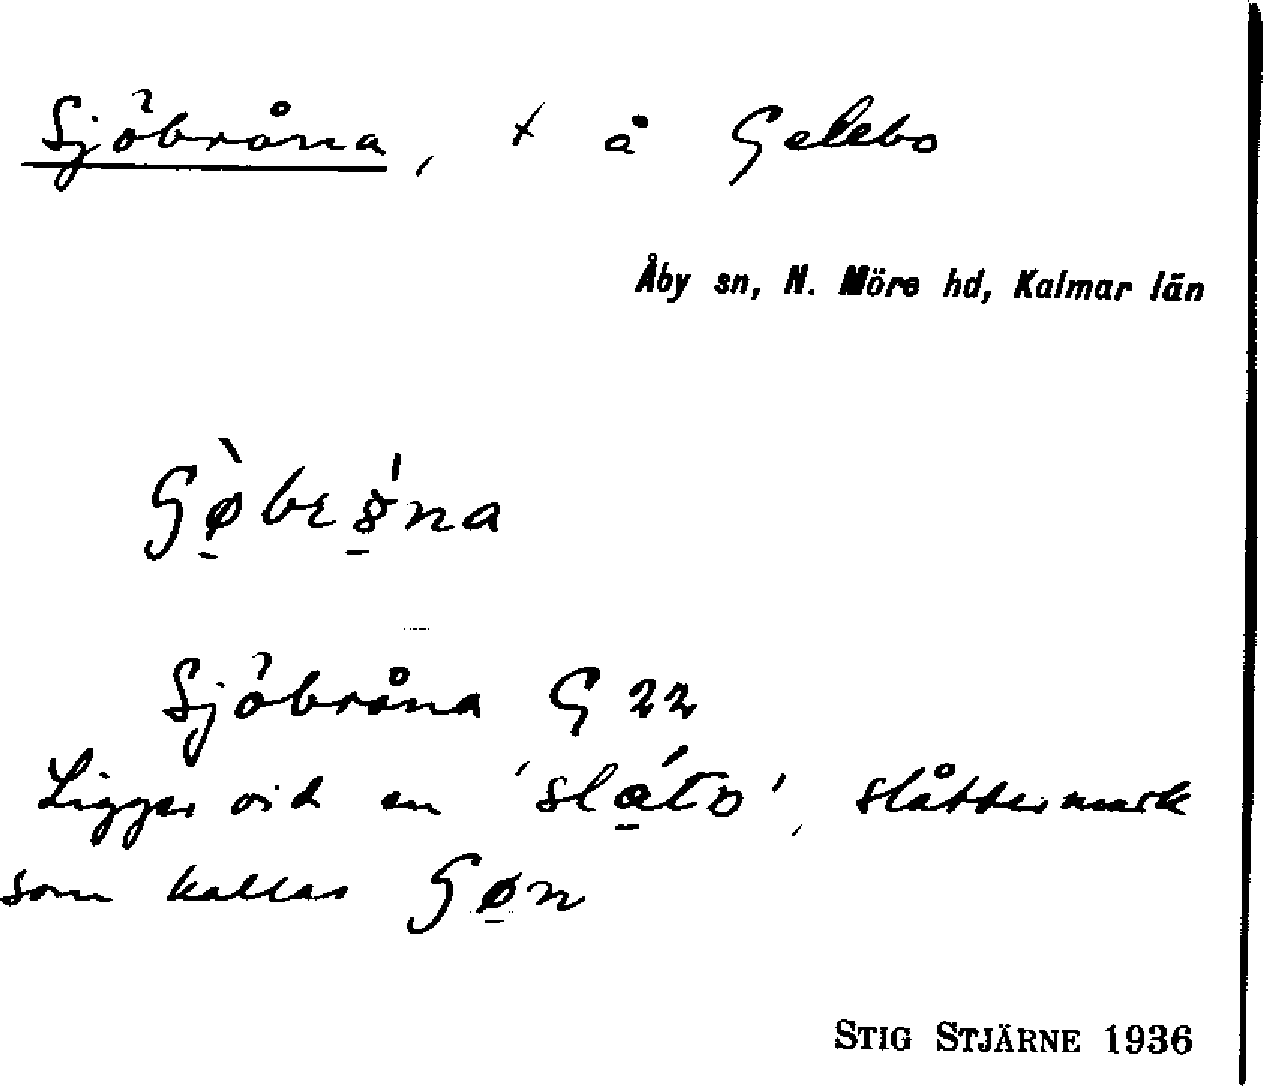 Sjöbråna, + å Gelebo
Åby sn, N. Möre hd, Kalmar län
Sjöbråna G 22
Ligger vid en 'slåto', slåttermark
som kallas
STIG STJÄRNE 1936